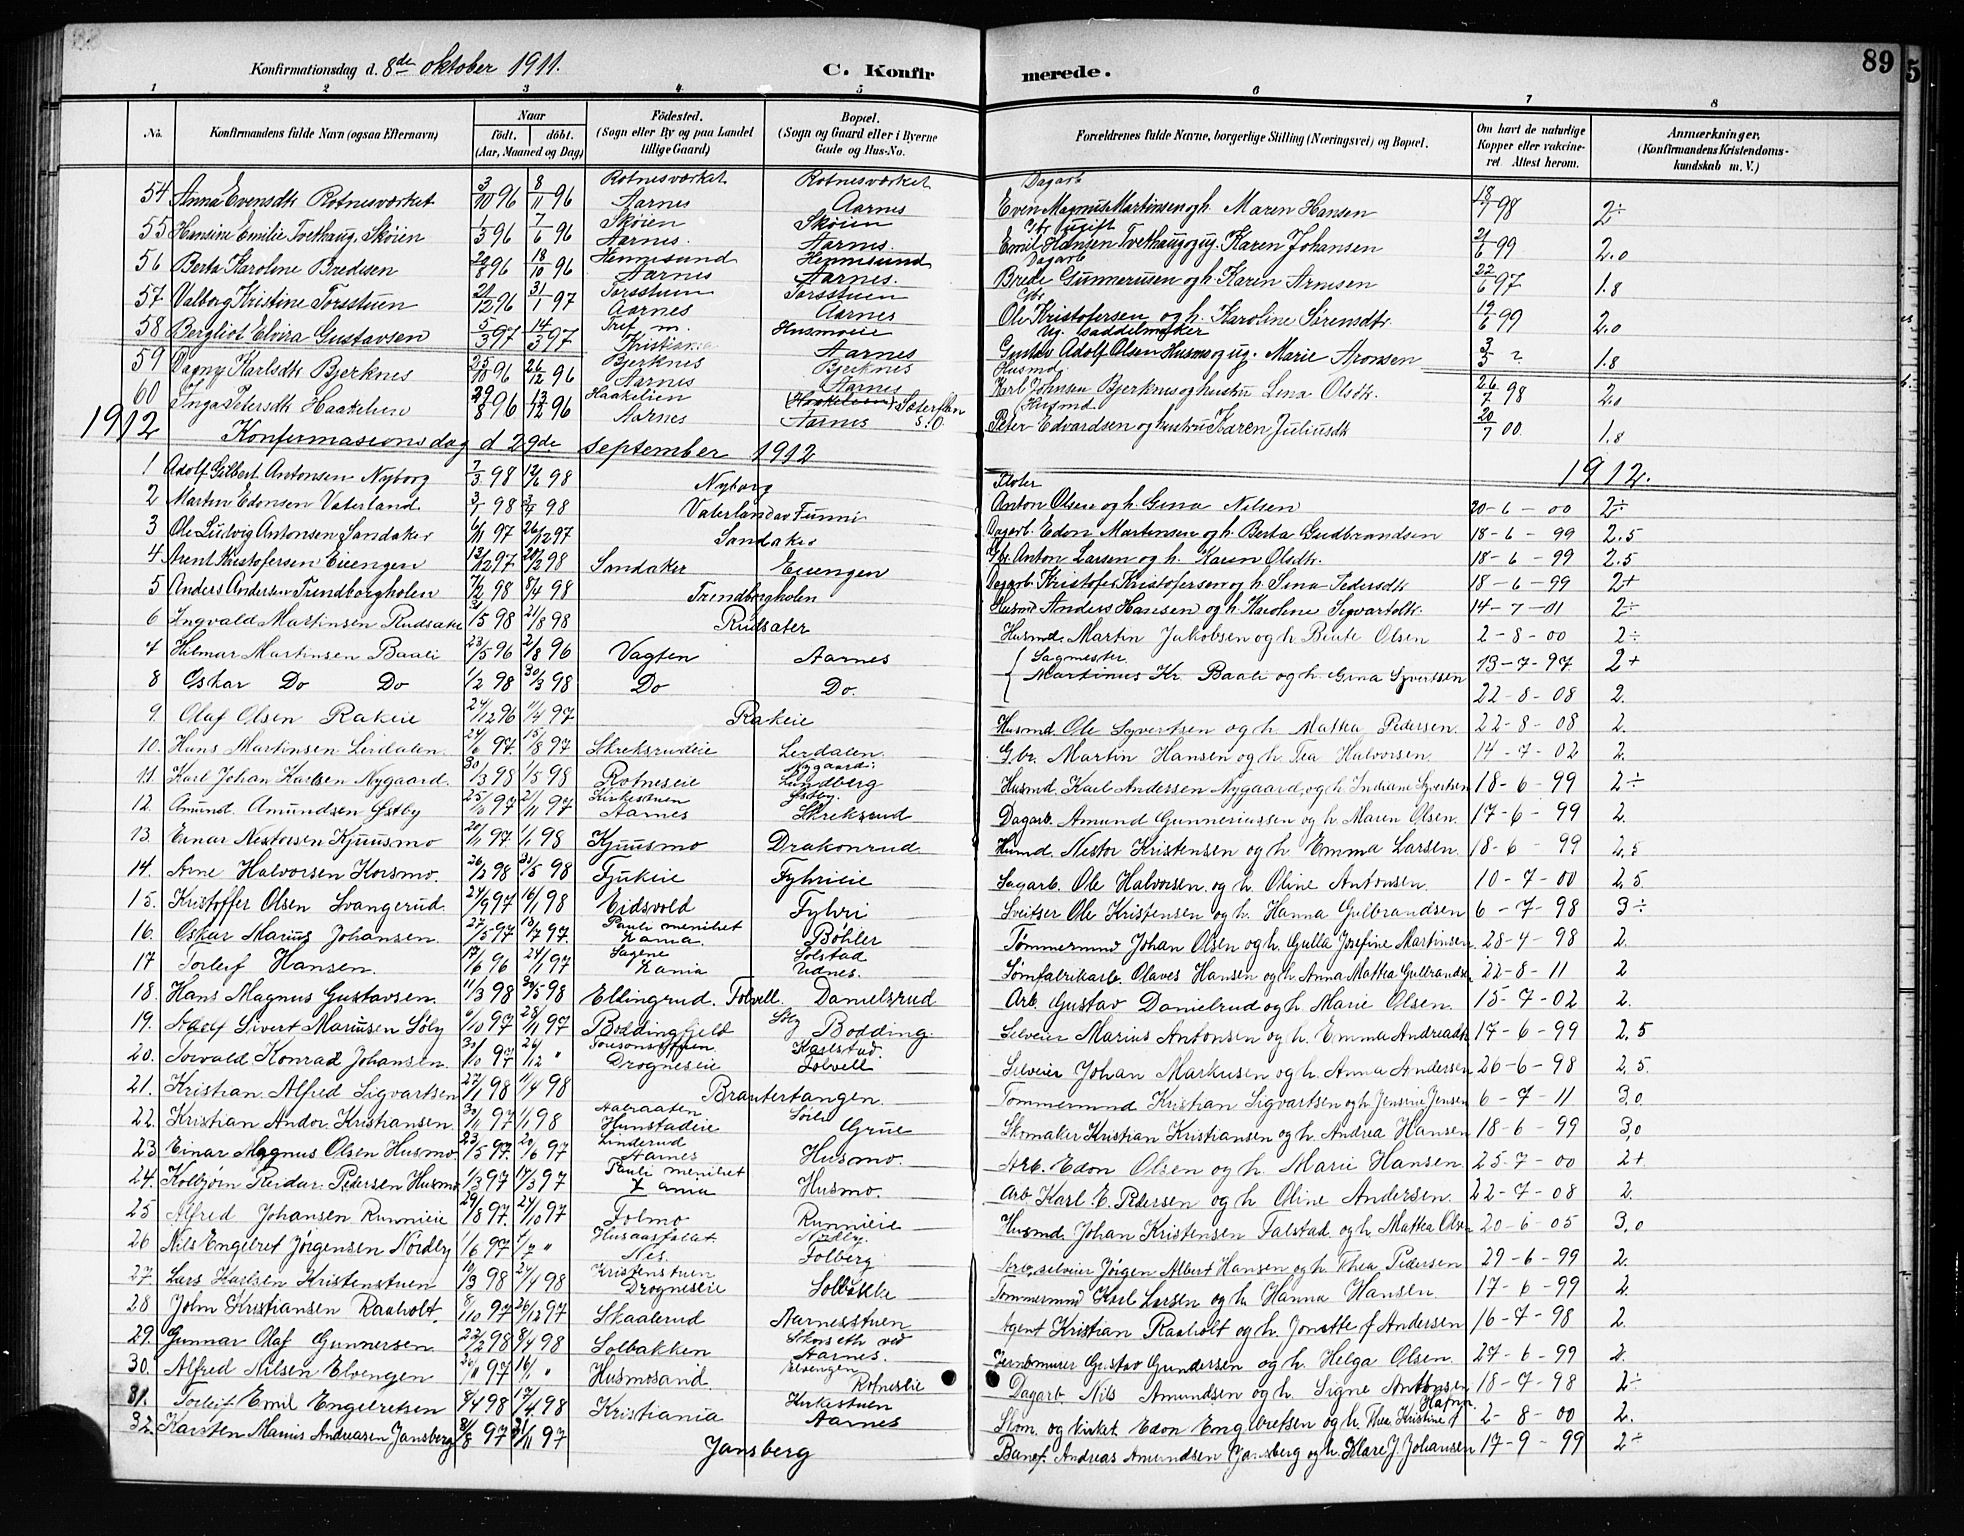 89
Konfirmationsdag d. 8de Oktober 1911.
C. Konfirmerede.
1 2 3 4 5 6 7 8
No. Konfirmandens fulde Navn (ogsaa Efternavn) Naar födt. döbt. (Aar, Maaned og Dag) Födested. (Sogn eller By og paa Landet tillige Gaard) Bopæl. (Sogn og Gaard eller i Byerne Gade og Hus-No. Forældrenes fulde Navne, borgerlige Stilling (Næringsvei) og Bopæl. Om havt de naturlige Kopper eller vakcineret. Attest herom. Anmærkninger, (Konfirmandens Kristendomskundskab m. V.)
54 Anna Evensdtr Rotnesværket 3/10 96 8/11 96 Rotnesværket Aarnes Rotnesværket Aarnes Dagarb Even Magnus Martinsen og h. Maren Hansen 18/7 98 2÷
55 Hansine Emilie Tvethaug, Skøien 1/3 96 7/6 96 Skøien Aarnes. Skøien Aarnes. Gbr. ugift Emil Hansen Tvethaug og ug. Karen Johansen 21/6 99 2.0
56 Berta Karoline Bredesen 20/8 96 18/10 96 Hennisund Aarnes Hennisund Aarnes. Dagarb Brede Gunnerusen og h. Karen Arnesen 22/6 97 1.8
57 Valborg Kristine Torsstuen 21/12 96 31/1 97 Torsstuen Aarnes Torsstuen Aarnes Gbr. Ole Kristofersen og h. Karoline Sørensdtr 19/6 99 2.0
58 Bergliot Elvira Gustavsen 5/3 97 14/3 97 Tref. m. Kristiania Husmoeie Aarnes Ug. Saddelmaker Gustav Adolf Olsen Husmo og ug. Marie Aronsen 3/5 ? 1.8
59 Dagny Karlsdtr Bjerknes 25/10 96 26/12 96 Bjerknes Aarnes Bjerknes Aarnes Husmd Karl Johnsen Bjerknes og hustru Lena Olsdtr. 26/7 98 2.0
60 Inga Petersdtr Haakelien 29/8 96 13/12 96 Haakelien Aarnes Aarnes s.O. Husmd Peter Edvardsen og hustru Karen Juliusdtr 20/7 00 1.8
1912 Konfirmasionsdag d 29de september 1912
1912.
1 Adolf Gilbert Antonsen Nyborg 7/3 98 12/6 98 Nyborg Anton Olsen og h. Gina Nilsen 20-6-00 2÷
2 Martin Edonsen Vaterland 98 98 Vaterland av Funni Dagarb. Edon Martinsen og h. Berta Gudbrandsen 18-6-99 2.5
3 Ole Ludvig Antonsen Sandaker 6/11 97 26/12 97 Sandaker Gbr. Anton Larsen og h. Karen Olsdtr. 18-6-99 2.5
4 Arent Kristofersen Eiengen 13/12 97 20/2 98 Sandaker Eiengen Dagarb. Kristofer Kristofersen og h. Sina Pedersdtr 18-6-99 2+
5 Anders Andersen Trendborgholen 7/2 98 8/4 98 Trendborgholen Husmd Anders Hansen og h. Karoline Sigvartsdtr. 14-7-01 2÷
6 Ingvald Martinsen Rudsater 31/5 98 21/8 98 Rudsater Husmd. Martin Jakobsen og h. Beate Olsen 2-8-00 2÷
7 Hilmar Martinsen Baali 23/5 96 2/8 96 Vagten Aarnes Sagmester Martinus Kr. Baali og h. Gina Syvertsen 13-7-97 2+
8 Oskar Do Do 1/2 98 30/3 98 Do Do. 22-8-08 2.
9. Olaf Olsen Rakeie 24/12 96 11/4 97 Rakeie Husmd Ole Syvertsen og h. Mathea Pedersen. 22-8-08 2.
10. Hans Martinsen Lerdalen. 24/6 97. 15/8 97 Skreksrudeie Lerdalen. Gbr. Martin Hansen og h. Tea Halvorsen. 14-7-02 2.
11. Karl Johan Karlsen Nygaard. 30/3 98 1/5 98 Rotneseie Nygaard. Lundberg Husmd Karl Andersen Nygaard og h. Indiane Syvertsen 18-6-99 2÷
12. Amund Amundsen Østby 25/10 97 21/11 97 Kirkestuen Aarnes Østby. Skreksrud Dagarb. Amund Gunneriussen og h. Maren Olsen. 17-6-99 2.
13. Einar Nestorsen Kjuusmo 20/11 97 1/1 98 Kjuusmo Drakonrud Husmd. Nestor Kristensen og h. Emma Larsen. 18-6-99 2.5
14. Arne Halvorsen Korsmo. 26/2 98 31/5 98 Tjukeie Fyhrieie Sagarb. Ole Halvorsen og h. Oline Antonsen. 10-7-00 2.5
15. Kristoffer Olsen Svangerud. 24/9 97 16/1 98 Eidsvold Fyhri Sveitser Ole Kristensen og h. Hanna Gulbrandsen 6-7-98 3÷
16. Oskar Marius Johansen. 27/5 97 18/7 97. Pauli menihet Kania. Böhler Tømmermnd Johan Olsen og h. Gulla Josefine Martinsen. 28-4-98 2.
17 Torleif Hansen. 17/6 96 24/1 97 Sagene Kania Solstad Udnes. Sømfabrikarb. Olaves Hansen og h. Anna Mathea Gulbrandsd. 22-8-11 2
18. Hans Magnus Gustavsen. 11/3 98 30/5 98 Ellingrud, Tolvell. Danielsrud Arb. Gustav Danielrud og h. Marie Olsen. 15-7-02 2.
19. Adolf Sivert Mariusen Søby 6/10 97 28/11 97 Boddingfjeld Søby Bodding Selveier Marius Antonsen og h. Emma Andreasdtr 17-6-99 2.5
20. Torvald Konrad Johansen. 30/10 97 26/12 " Drogneseie Karlstad. Tolvell Selveier Johan Markusen og h. Anna Andersen 26-6-98 2.5
21. Kristian Alfred Sigvartsen 27/1 98 11/4 98 Brautertangen. Tømmermnd Kristian Sigvartsen og h. Jensine Jensen 6-7-11 3.0
22. Kristian Andor Kristiansen. 30/11 97 1/1 98 Hunstadeie Grue Skomaker Kristian Kristiansen og h. Andrea Hansen 18-6-99 3,0
23 Einar Magnus Olsen Husmo. 23/5 97. 20/6 97 Linderud Aarnes Husmo. Arb. Edon Olsen og h. Marie Hansen. 25-7-00 2+
24. Kolbjørn Reidar Pedersen Husmo 1/3 97 17/3 97 Pauli menihet Kania Husmo. Arb Karl E. Pedersen og h. Oline Andersen. 22-7-08 2.
25 Alfred Johansen Runnieie 29/8 97 24/10 97 Folmo Runnieie Husmd. Johan Kristensen Falstad og h. Mathea Olsen 20-6-05 3,0
26 Nils Engelret Jørgensen Nordby 1/6 97 4/7 " Nes. Nordby. Tolberg Arb. selveier Jörgen Albert Hansen og h. Thea Pedersen 29-6-99 2.
27. Lars Karlsen Kristenstuen 10/3 98 24/4 98 Kristenstuen Drogneseie Solbakke Tømmermnd Karl Larsen og h. Hanna Hansen 17-6-99 2.
28 John Kristiansen Raaholt. 8/10 97 26/12 97 Skaalerud Aarnesstuen Agent Kristian Raaholt og h. Jonette f Andersen 16-7-98 2.
29. Gunnar Olaf Gunnersen. 22/2 98 8/4 98 Solbakken Skorseth ved Aarnes. Gustav Gundersen og h. Helga Olsen. 27-6-99 2.
30. Alfred Nilsen Elvengen 97 " Husmosand. Elvengen Rotneseie Dagarb Nils Amundsen og h. Signe Antonsen 18-7-98 2÷
31. Torleif Emil Engelretsen 8/4 98 17/4 98 Kristiania Kirkestuen Aarnes Skom. og Kirket. Edon Engelbretsen og h. Thea Kristine f Hafnr. 2-8-00 2.
32 Karsten Marius Andreasen Jansberg 31/8 97 21/11 97 Jansberg Banef. Andreas Amundsen Jansberg og h. Klare J. Johansen 17-9-99 2÷